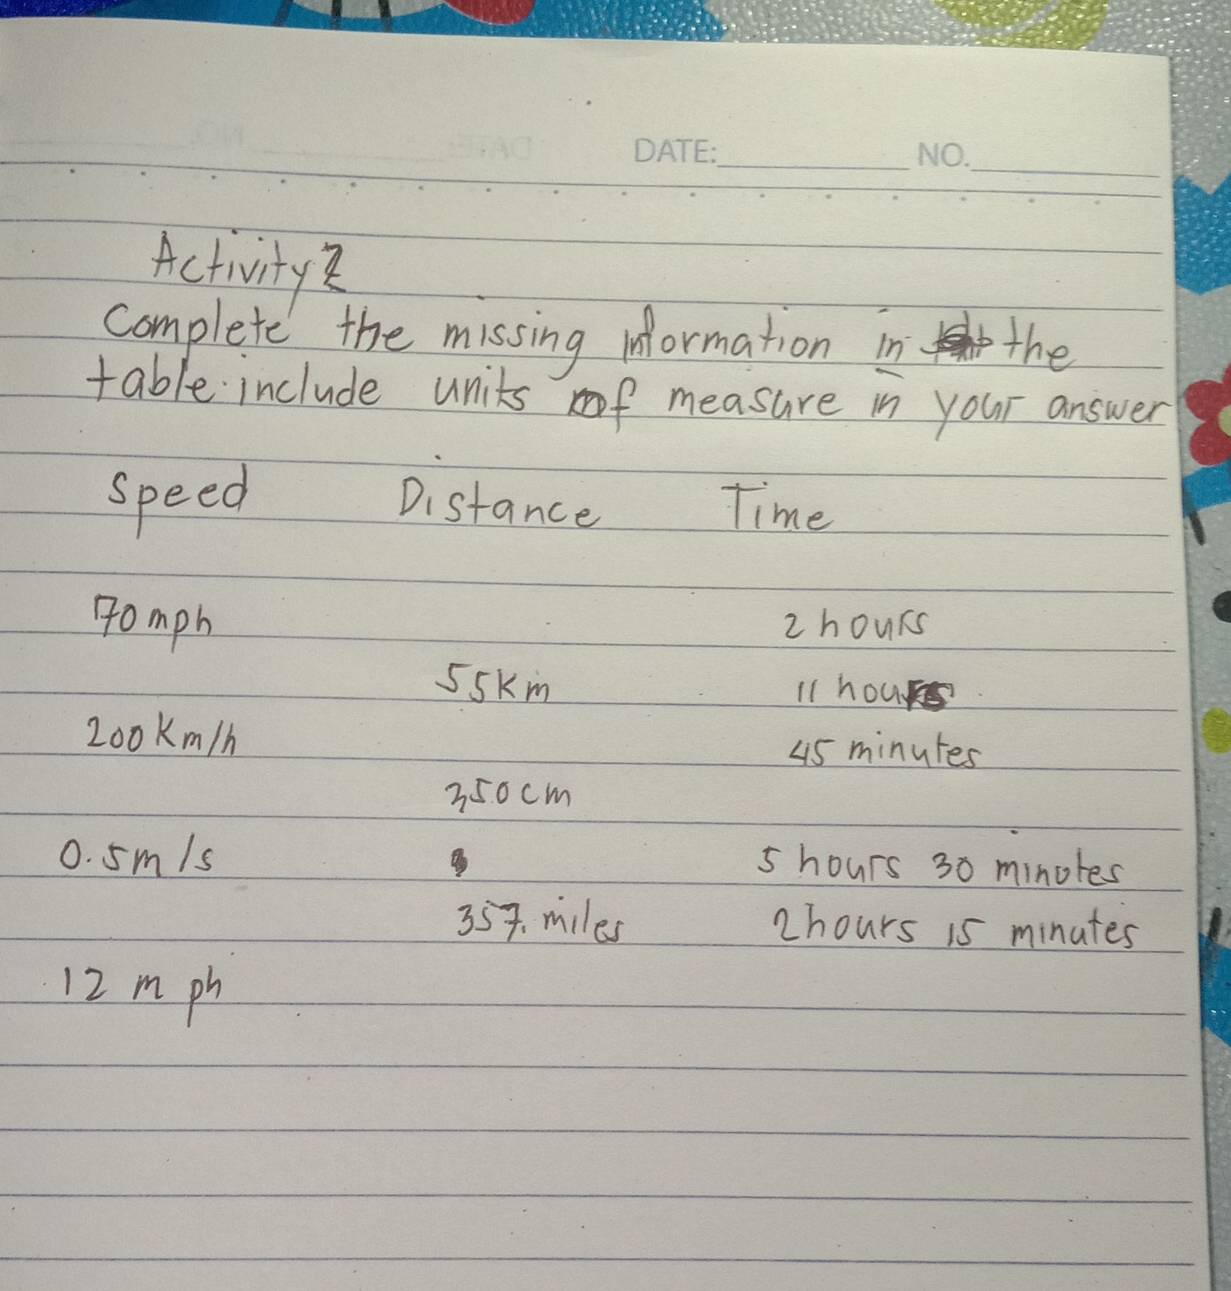 DATE: NO.
Activity 2
Complete the missing information in the
table. include units of measure in your answer
Speed Distance Time
70 mph 2 hours
55 Km 11 hours
200 Km/h 45 minutes
350 cm
0.5 m/s 5 hours 30 minotes
357. miles 2 hours 15 minutes
12 mph